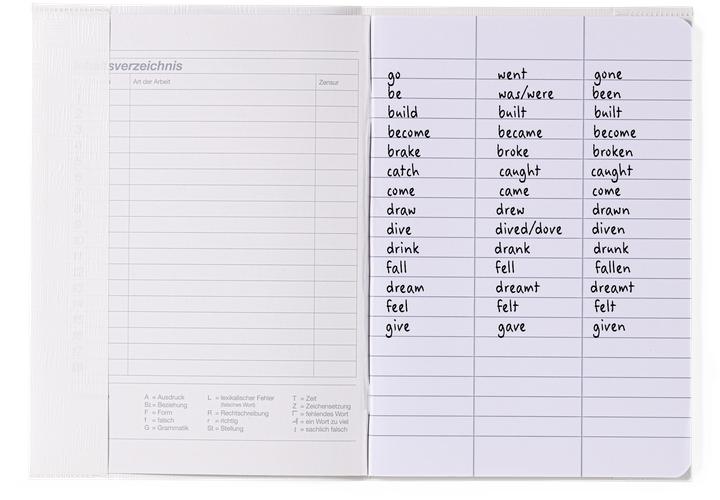 sverzeichnis
Art der Arbeit Zensur
A = Ausdruck L = lexikalischer Fehler T = Zeit
Bz = Beziehung (falsches Wort) Z = Zeichensetzung
F = Form R = Rechtschreibung Γ = fehlendes Wort
f = falsch r = richtig ein Wort zu viel
G = Grammatik St = Stellung = sachlich falsch
go went gone
be was/were been
build built built
become became become
brake broke broken
catch caught caught
come came come
draw drew drawn
dive dived/dove diven
drink drank drunk
fall fell fallen
dream dreamt dreamt
feel felt felt
give gave given